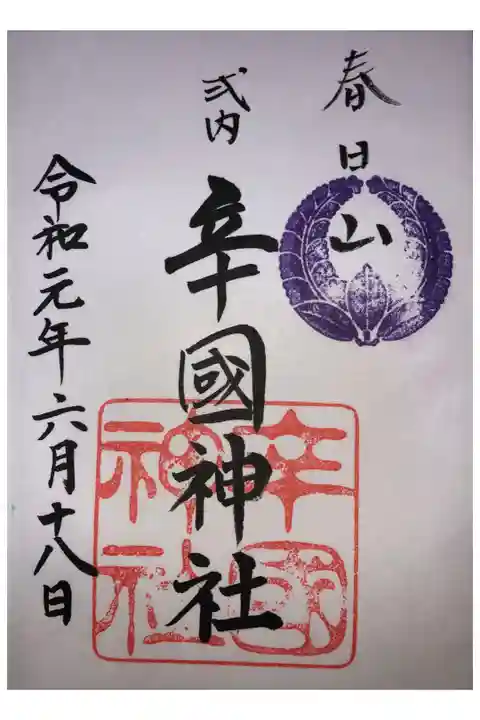 春日山
式内
辛國神社
辛國
神社
令和元年六月十八日